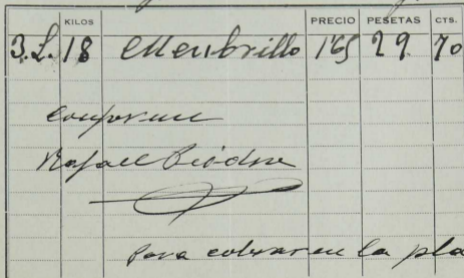 KILOS PRECIO PESETAS CTS.
3.L. 18 Membrillo 1'65 29 70
conforme
Rafael
para cobrar en la pla